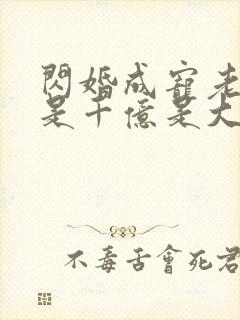 閃婚成寵老
是千億是大
不毒舌會死君